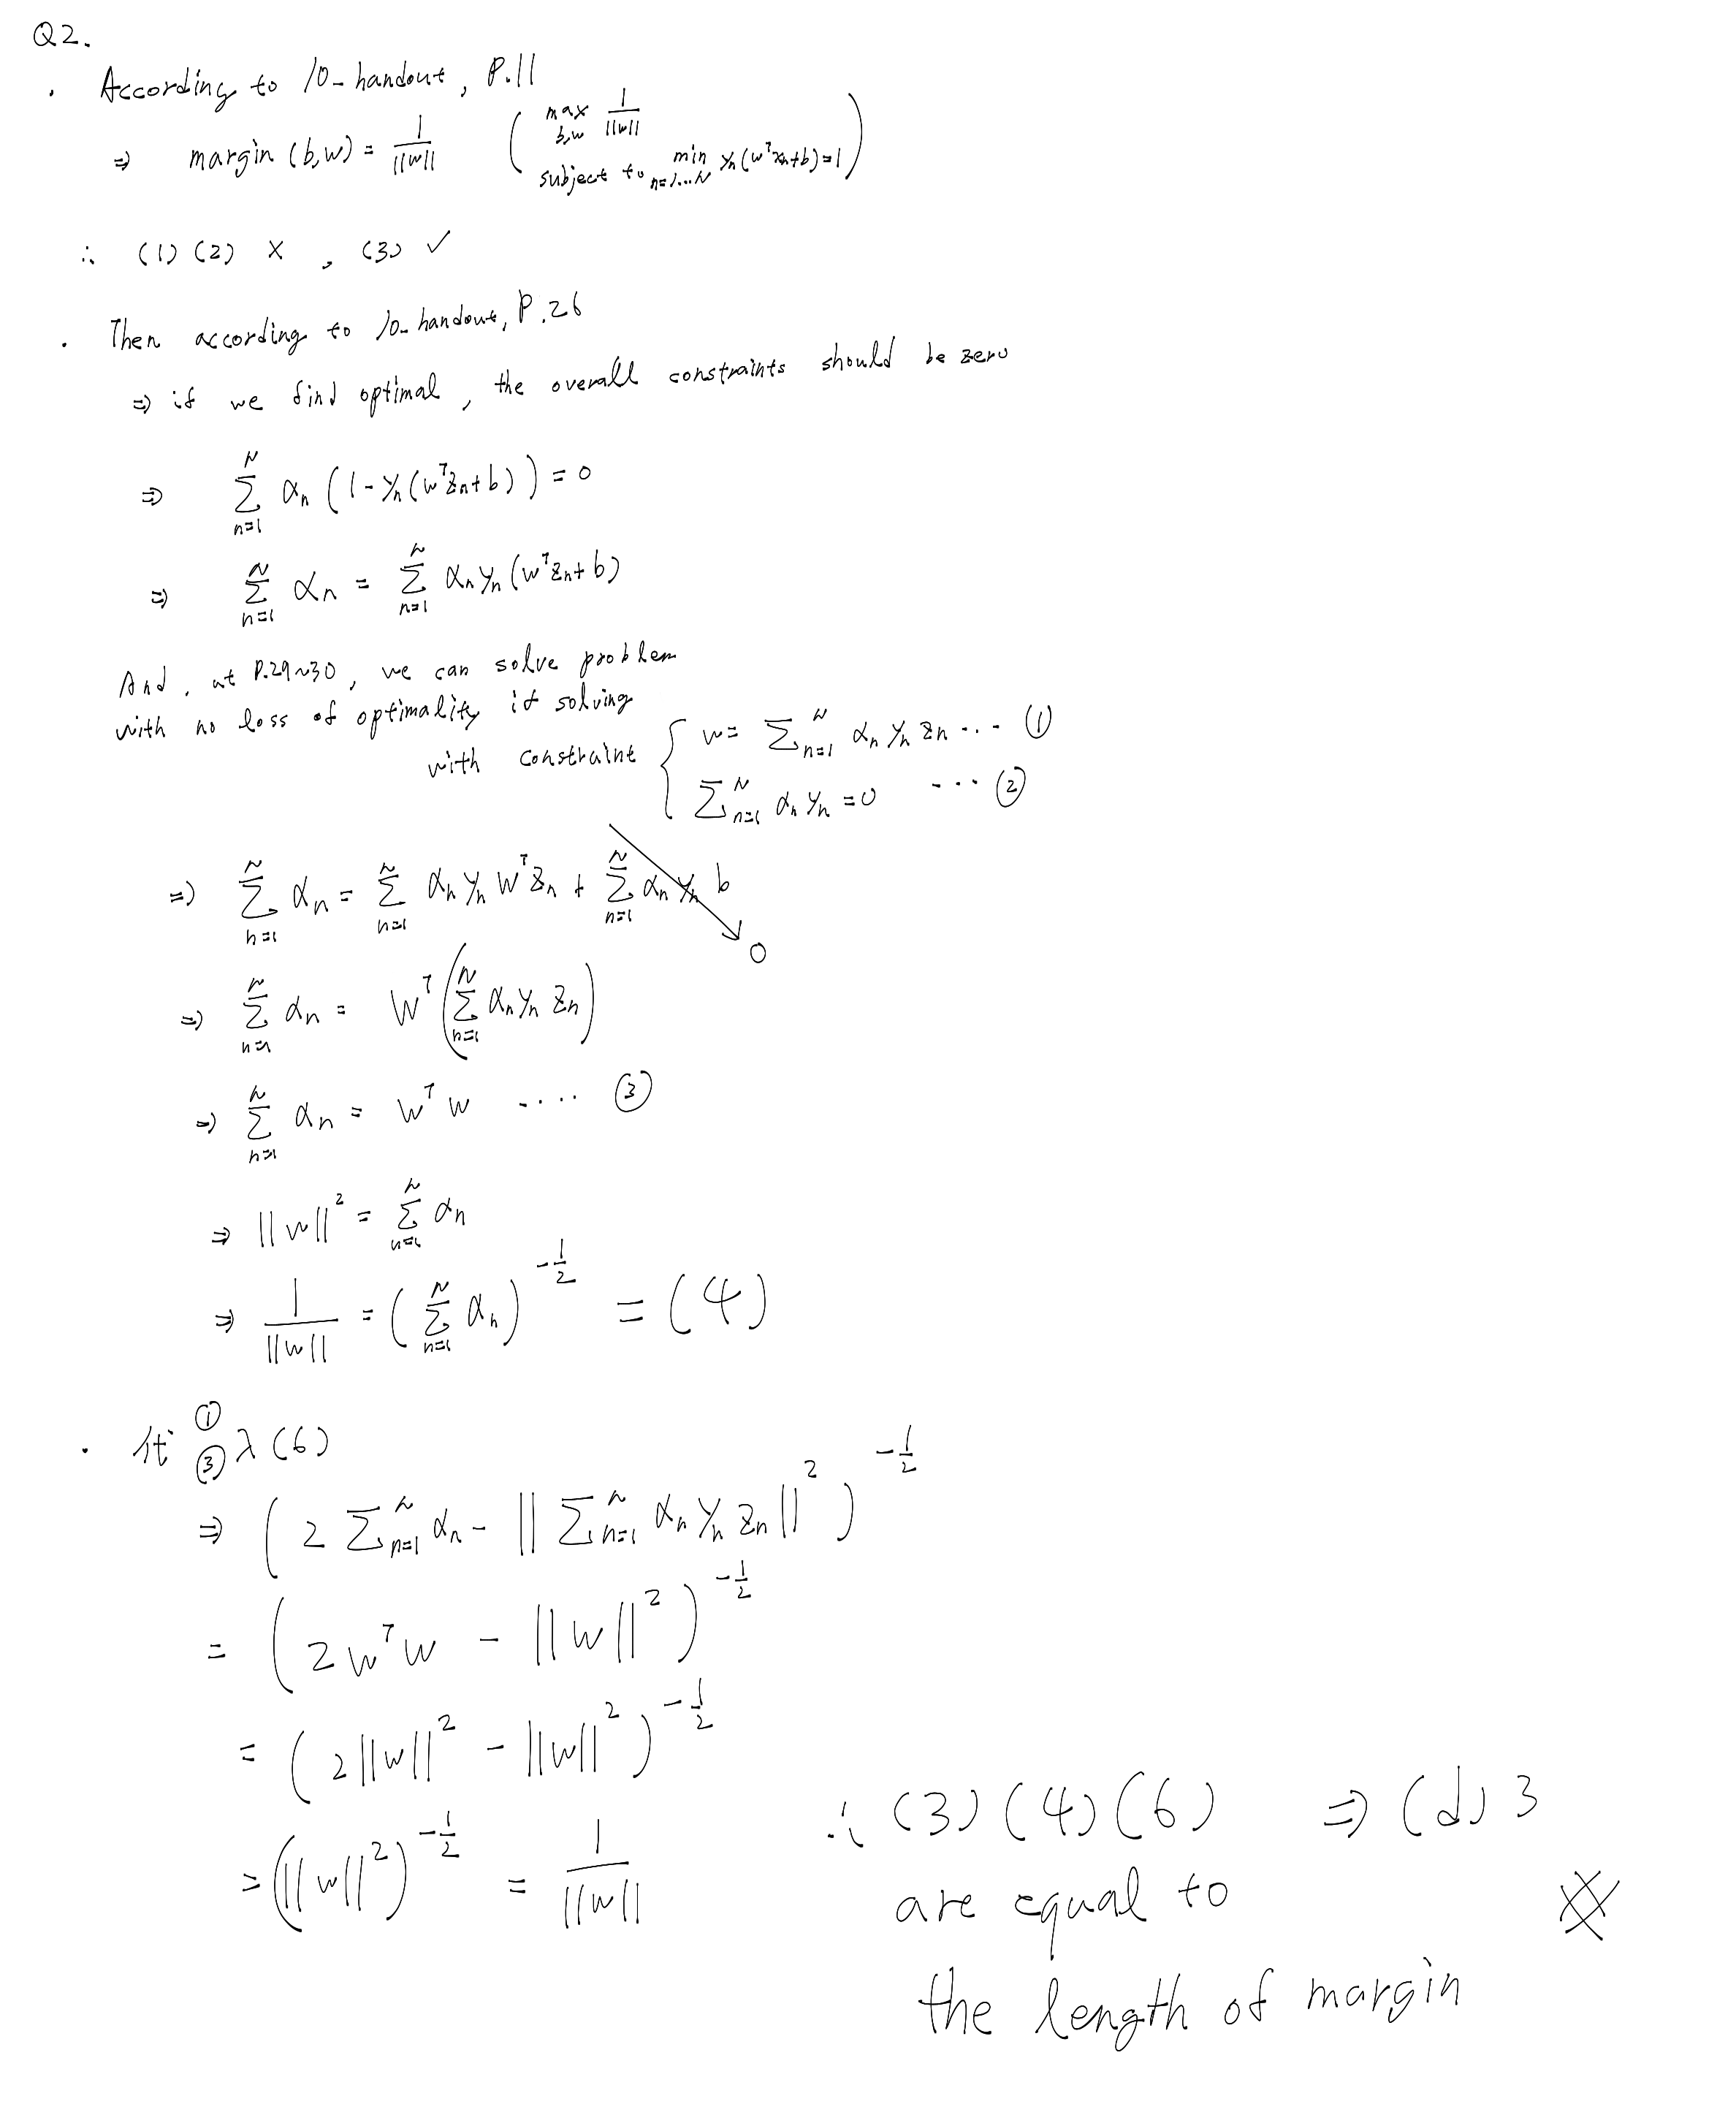 Q2.
· According to 10-handout, P.11
⇒ margin (b,w) = 1/||w|| ( max b,w 1/||w|| subject to min n=1...N yn(wᵀxn+b)=1 )
∴ (1) (2) ✗ , (3) ✓
· Then according to 10-handout, P.26
⇒ if we find optimal, the overall constraints should be zero
⇒ Σ_{n=1}^{N} αn (1-yn(wᵀzn+b)) = 0
⇒ Σ_{n=1}^{N} αn = Σ_{n=1}^{N} αn yn (wᵀzn+b)
And, at P.29~30, we can solve problem
with no loss of optimality if solving
with constraint { w = Σ_{n=1}^{N} αn yn zn ... ①
Σ_{n=1}^{N} αn yn = 0 ... ②
⇒ Σ_{n=1}^{N} αn = Σ_{n=1}^{N} αn yn wᵀzn + Σ_{n=1}^{N} αn yn b → 0
⇒ Σ_{n=1}^{N} αn = wᵀ(Σ_{n=1}^{N} αn yn zn)
⇒ Σ_{n=1}^{N} αn = wᵀw .... ③
⇒ ||w||² = Σ_{n=1}^{N} αn
⇒ 1/||w|| = (Σ_{n=1}^{N} αn)^{-1/2} = (4)
· 代 ① ③ 入 (6)
⇒ (2 Σ_{n=1}^{N} αn - ||Σ_{n=1}^{N} αn yn zn||²)^{-1/2}
= (2wᵀw - ||w||²)^{-1/2}
= (2||w||² - ||w||²)^{-1/2}
= (||w||²)^{-1/2} = 1/||w||
∴ (3) (4) (6) ⇒ (d) 3
are equal to
the length of margin